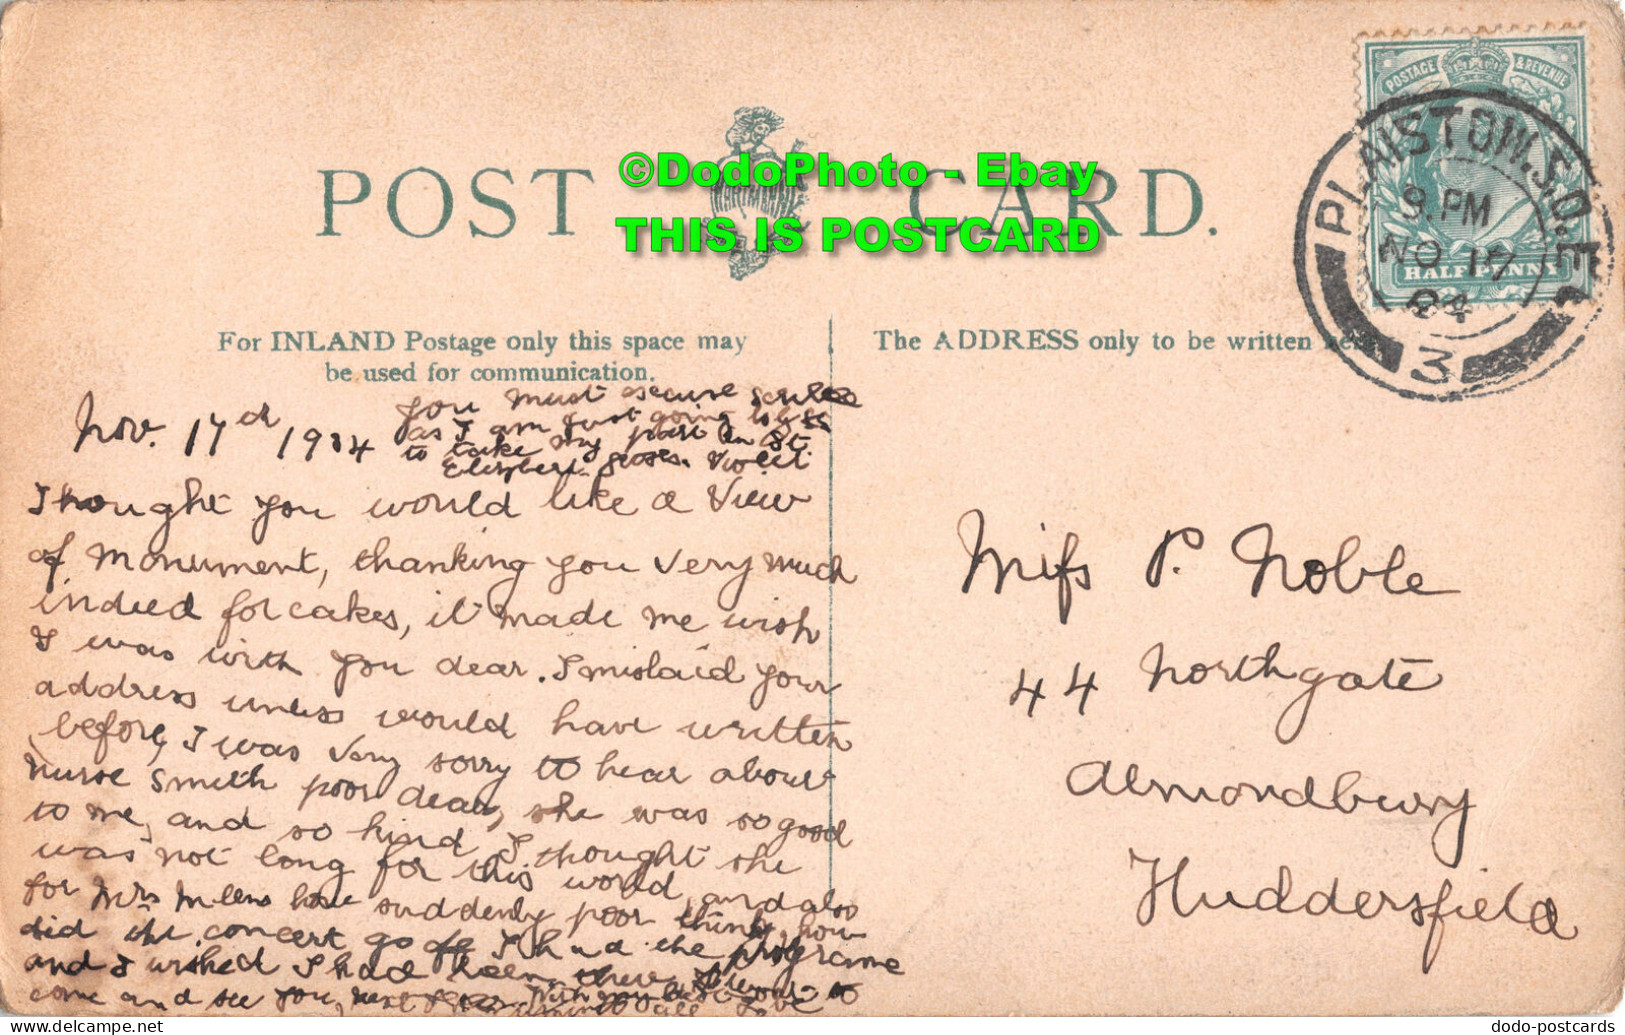 POST CARD.
©DodoPhoto - Ebay
THIS IS POSTCARD
POSTAGE & REVENUE
HALFPENNY
PLAISTOW. S.O. E.
9. PM
NO 17
04
3
For INLAND Postage only this space may
be used for communication.
The ADDRESS only to be written
Nov. 17th 1904
you must excuse
as I am just going
to take my part in St.
Violet
Thought you would like a View
of Monument, thanking you very much
indeed for cakes, it made me wish
I was with you dear. I mislaid your
address unless would have written
before, I was very sorry to hear about
Nurse Smith poor dear, she was so good
to me, and so kind, I thought she
was not long for this world, and also
for Mrs Mellens have suddenly poor thing, how
did the concert go off I had the programe
and I wished I had been there
come and see you, next
Miss P. Noble
44 Northgate
Almondbury
Huddersfield
dodo-postcards